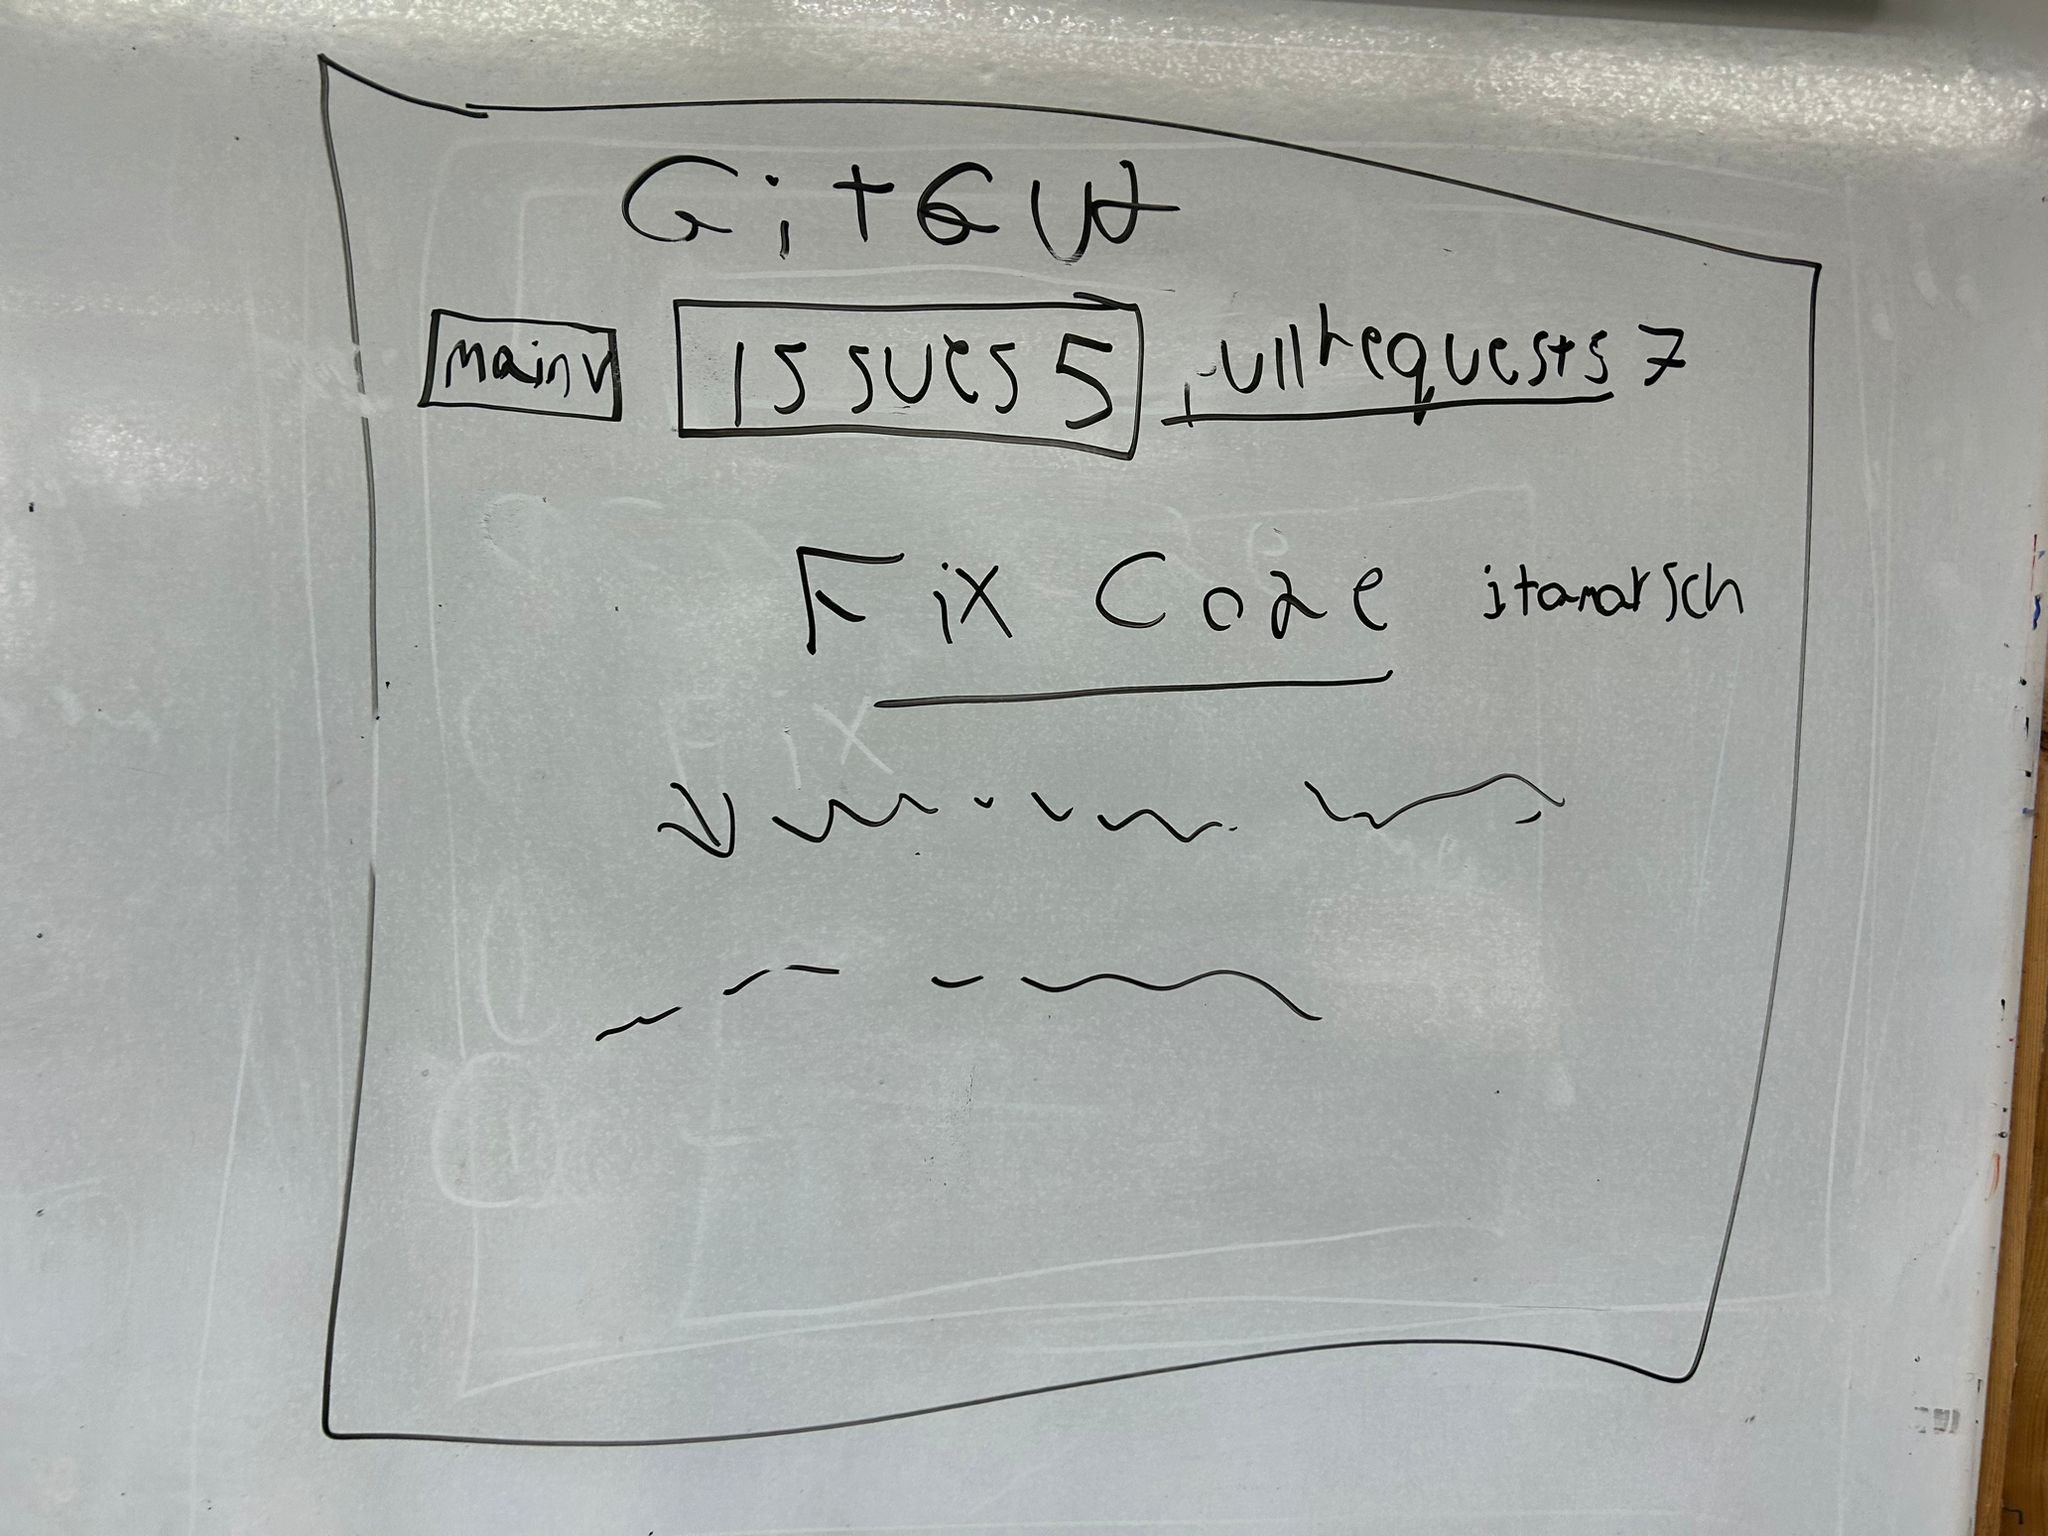 main v issues 5 pull requests 7
Fix Code itamarsch